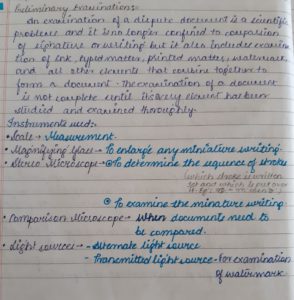 Preliminary Examinations:-
An examination of a dispute document is a scientific
problems and it is no longer confined to comparison
of signature or writing but it also includes examina
tion of ink, typed matter, printed matter, watermark
and all other elements that combine together to
form a document. The examination of a document
is not complete until its every element has been
studied and examined thoroughly.
Instruments used:-
• Scale → Measurement.
• Magnifying Glass → To enlarge any miniature writing.
• Stereo Microscope → ① To determine the sequence of strokes
(which stroke is written
1st and which is put over
it.
② To examine the minature writing
• Comparison Microscope → When documents need to
be compared.
• Light sources → - Alternate light source
- Transmitted light source - for examination
of watermark.